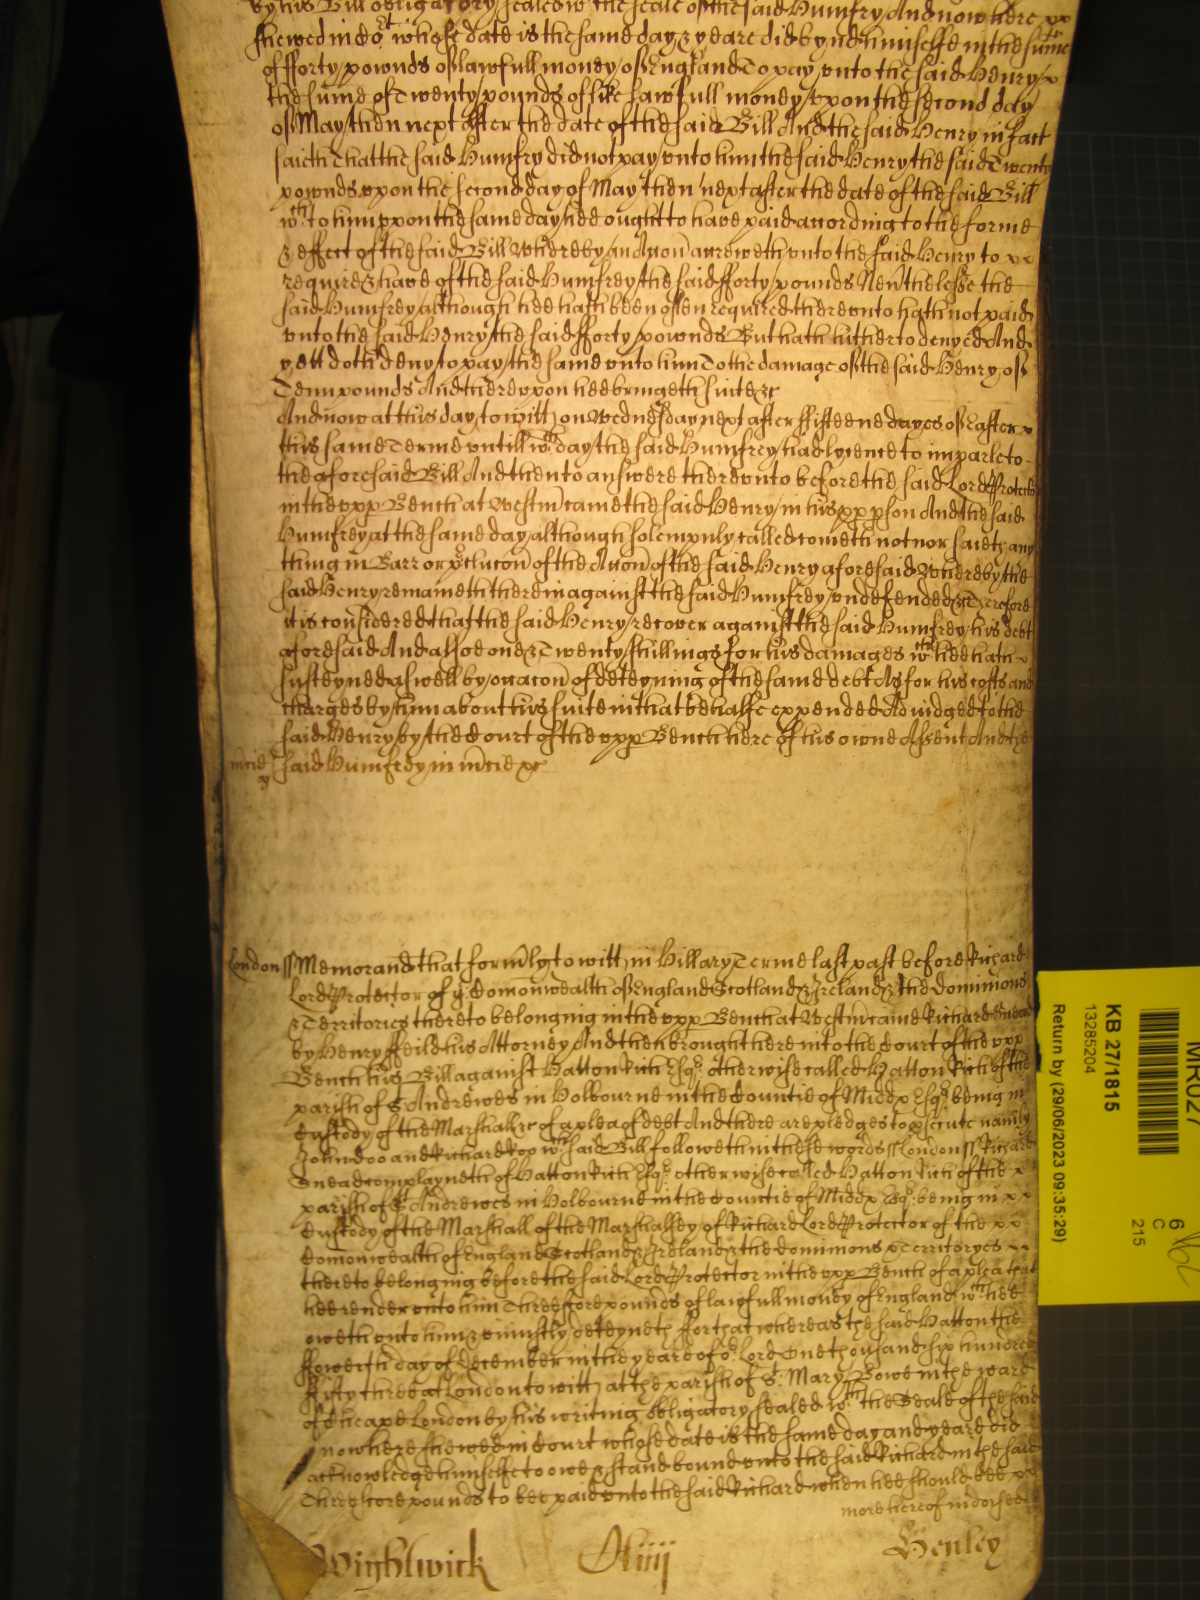 by his Bill obligatory sealed wth the seale of the said Humfry And now here xx
shewed in Cort whose date is the same day & yeare did bynd himselfe in the sume
of fforty pownds of lawfull money of England To pay unto the said Henry x
the sume of Twenty pounds of like lawfull money upon the second day
of May then next after the date of the said Bill And the said Henry in fact
saith that the said Humfry did not pay unto him the said Henry the said Twenty
pownds upon the second day of May then next after the date of the said Bill
wch to him upon the same day hee ought to have paid according to the forme
& effect of the said Bill Whereby an Accon accreweth unto the said Henry to xx
require & have of the said Humfrey the said fforty pounds Nevtheless the
said Humfrey although hee hath been often required thereunto hath not paid
unto the said Henry the said fforty pownds But hath hitherto denyed And
yett doth deny to pay the same unto him To the damage of the said Henry of
Tenn pounds And thereupon hee bringeth suite &c
And now at this day to witt on Wednesday next after ffifteene dayes of Easter x
this same Terme untill wch day the said Humfrey had lycence to imparle to
the aforesaid Bill And then to answere thereunto before the said Lord Protector
in the upp Bench at Westm came the said Henry in his pp pson And the said
Humfrey at the same day although solempnly called cometh not nor saieth any
thing in Barr or pclucon of the Accon of the said Henry aforesaid Whereby the
said Henry remaineth therein against the said Humfrey undefended Therefore
it is considered that the said Henry recover against the said Humfrey his debt
aforesaid And alsoe one & Twenty shillings for his damages wch hee hath x
susteyned as well by occacon of deteyning of the same debt As for his costs and
charges by him about his suite in that behalfe expended Adiudged to the
said Henry by the Court of the upp Bench here of his owne Assent And the
mcie said Humfrey in mcie &c
London ss Memorand that formly to witt in Hillary Terme last past before Richard
Lord Protector of ye Comonwealth of England Scotland & Ireland & the dominions
& Territories thereto belonging in the upp Bench at Westm came Richard Snead
by Henry ffeild his Attorney And then brought here into the Court of the upp
Bench his Bill against Hatton Rich Esqr otherwise called Hatton Rich of the
parish of St Andrewes in Holbourne in the Countie of Middx Esqr being in
Custody of the Marshall &c of a plea of debt And there are pledges to psecute namely
John doo and Richard Roo wch said Bill followeth in these words ss London ss Richard
Snead complayneth of Hatton Rich Esqr otherwise called Hatton Rich of the x
parish of St Andrewes in Holbourne in the Countie of Middx Esqr being in xx
Custody of the Marshall of the Marshalsey of Richard Lord Protector of the xx
Comonwealth of England Scotland & Ireland & the dominions & Territoryes xx
thereto belonging before the said Lord Protector in the upp Bench of a plea that
hee render unto him Threescore pounds of lawfull money of England wch hee
oweth unto him & uniustly deteyneth ffor that whereas the said Hatton the
ffowerth day of December in the yeare of or Lord One thousand six hundred
ffifty three at London to witt at the parish of St Mary Bowe in the ward
of Cheape London by his writing obligatory sealed wth the Seale of the said
now here shewed in Court whose date is the same day and yeare did
acknowledge himselfe to owe & stand bound unto the said Richard in the said
Threescore pounds to bee paid unto the said Richard when hee should bee xx
more hereof indorsed
Wightwick
Henley
MR027
KB 27/1815
13285204
Return by (29/06/2023 09:35:29)
6
C
215